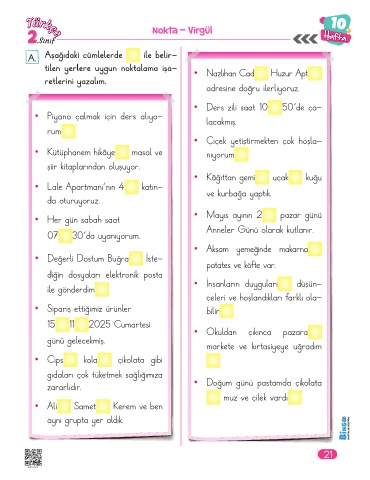 Türkçe
2.Sınıf
Nokta – Virgül
10
Hafta
A.
Aşağıdaki cümlelerde ile belir-
tilen yerlere uygun noktalama işa-
retlerini yazalım.
• Piyano çalmak için ders alıyo-
rum
• Kütüphanem hikâye masal ve
şiir kitaplarından oluşuyor.
• Lale Apartmanı'nın 4 katın-
da oturuyoruz.
• Her gün sabah saat
07 30'da uyanıyorum.
• Değerli Dostum Buğra İste-
diğin dosyaları elektronik posta
ile gönderdim
• Sipariş ettiğimiz ürünler
15 11 2025 Cumartesi
günü gelecekmiş.
• Cips kola çikolata gibi
gıdaları çok tüketmek sağlığımıza
zararlıdır.
• Ali Samet Kerem ve ben
aynı grupta yer aldık.
• Nazlıhan Cad Huzur Apt
adresine doğru ilerliyoruz.
• Ders zili saat 10 50'de ça-
lacakmış.
• Çiçek yetiştirmekten çok hoşla-
nıyorum
• Kâğıttan gemi uçak kuğu
ve kurbağa yaptık.
• Mayıs ayının 2 pazar günü
Anneler Günü olarak kutlanır.
• Akşam yemeğinde makarna
patates ve köfte var.
• İnsanların duyguları düşün-
celeri ve hoşlandıkları farklı ola-
bilir
• Okuldan çıkınca pazara
markete ve kırtasiyeye uğradım
• Doğum günü pastamda çikolata
muz ve çilek vardı
BİNGO
21